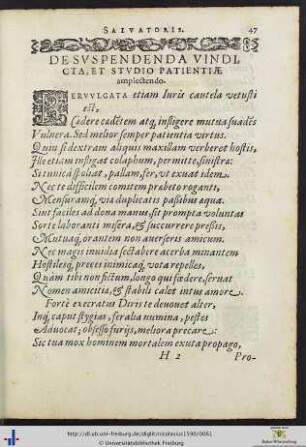 SALVATORIS. 47
DE SVSPENDENDA VINDI
CTA, ET STVDIO PATIENTIÆ
amplectendo.
PERVVLGATA etiam Iuris cautela vetusti
est,
Cædere cædētem atq́; infligere mutua suadēs
Vulnera. Sed melior semper patientia virtus.
Quin si dextram aliquis maxillam verberet hostis,
Ille etiam infligat colaphum, permitte, sinistra:
Si tunica spoliat, pallam, fer, vt exuat idem.
Nec te difficilem comitem præbeto roganti,
Mensuramq́; viæ duplicatis passibus æqua.
Sint faciles ad dona manus, sit prompta voluntas
Sorte laboranti misera, & succurrere pressis,
Mutuaq́; orantem non auerseris amicum.
Nec magis inuidia sectabere acerba minantem
Hostilesq́; preces inimicaq́; vota repelles,
Quàm tibi non fictum, longo qui fœdere, seruat
Nomen amicitiæ, & stabili calet intus amore.
Fortè execratus Diris te deuouet alter,
Inq́; caput stygias, feralia numina, pestes
Aduocat; obsesso furijs, meliora precare:
Sic tua mox hominem mortalem exuta propago,
H 2 Pro-
http://dl.ub.uni-freiburg.de/diglit/nicolasius1590/0061
© Universitätsbibliothek Freiburg
Baden-Württemberg